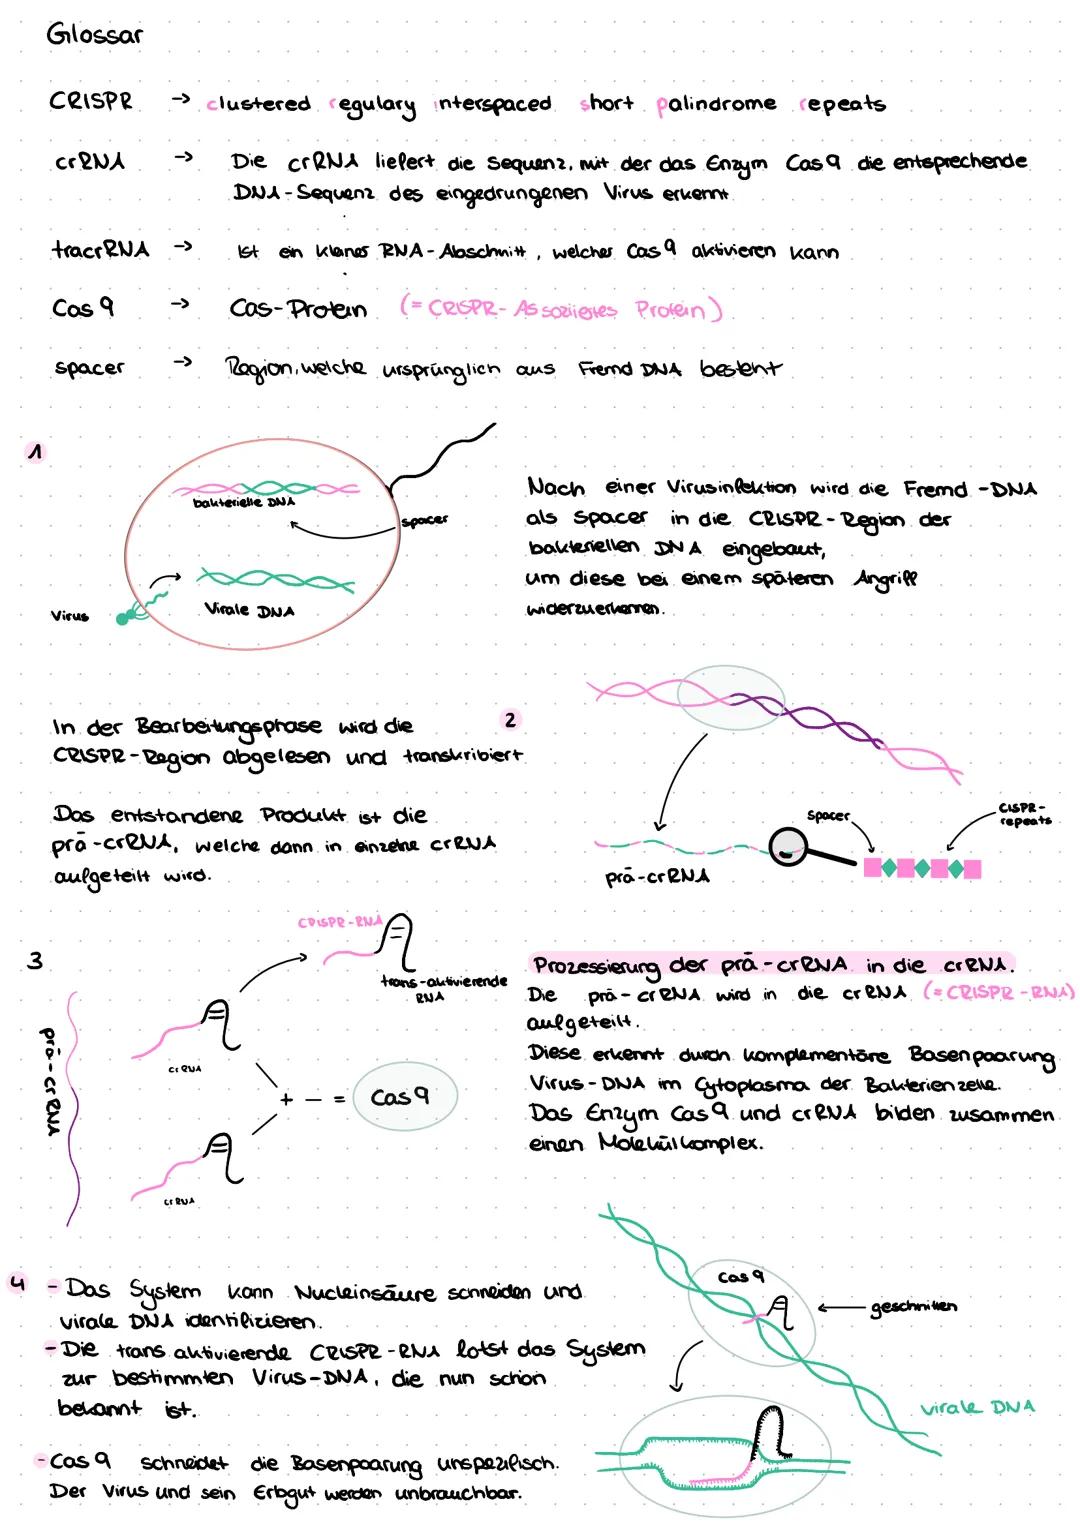 Glossar
CRISPR → clustered regulary interspaced short palindrome repeats
crRNA → Die crRNA liefert die Sequenz, mit der das Enzym Cas9 die entsprechende
DNA-Sequenz des eingedrungenen Virus erkennt
tracrRNA → Ist ein kleines RNA-Abschnitt, welcher Cas9 aktivieren kann
Cas9 → Cas-Protein (= CRISPR-Assoziiertes Protein)
spacer → Region, welche ursprünglich aus Fremd DNA besteht
1
bakterielle DNA
spacer
Virale DNA
Virus
Nach einer Virusinfektion wird die Fremd-DNA
als Spacer in die CRISPR-Region der
bakteriellen DNA eingebaut,
um diese bei einem späteren Angriff
widerzuerkennen.
2
In der Bearbeitungsphase wird die
CRISPR-Region abgelesen und transkribiert
Das entstandene Produkt ist die
prä-crRNA, welche dann in einzelne crRNA
aufgeteilt wird.
Spacer
CISPR-
repeats
prä-crRNA
3
prä-crRNA
CRISPR-RNA
trans-aktivierende
RNA
crRNA
+ - = Cas9
crRNA
Prozessierung der prä-crRNA in die crRNA.
Die prä-crRNA wird in die crRNA (= CRISPR-RNA)
aufgeteilt.
Diese erkennt durch komplementäre Basenpaarung
Virus-DNA im Cytoplasma der Bakterienzelle.
Das Enzym Cas9 und crRNA bilden zusammen
einen Molekülkomplex.
4
- Das System kann Nucleinsäure schneiden und
virale DNA identifizieren.
- Die trans aktivierende CRISPR-RNA lotst das System
zur bestimmten Virus-DNA, die nun schon
bekannt ist.
- Cas9 schneidet die Basenpaarung unspezifisch.
Der Virus und sein Erbgut werden unbrauchbar.
Cas9
geschnitten
virale DNA